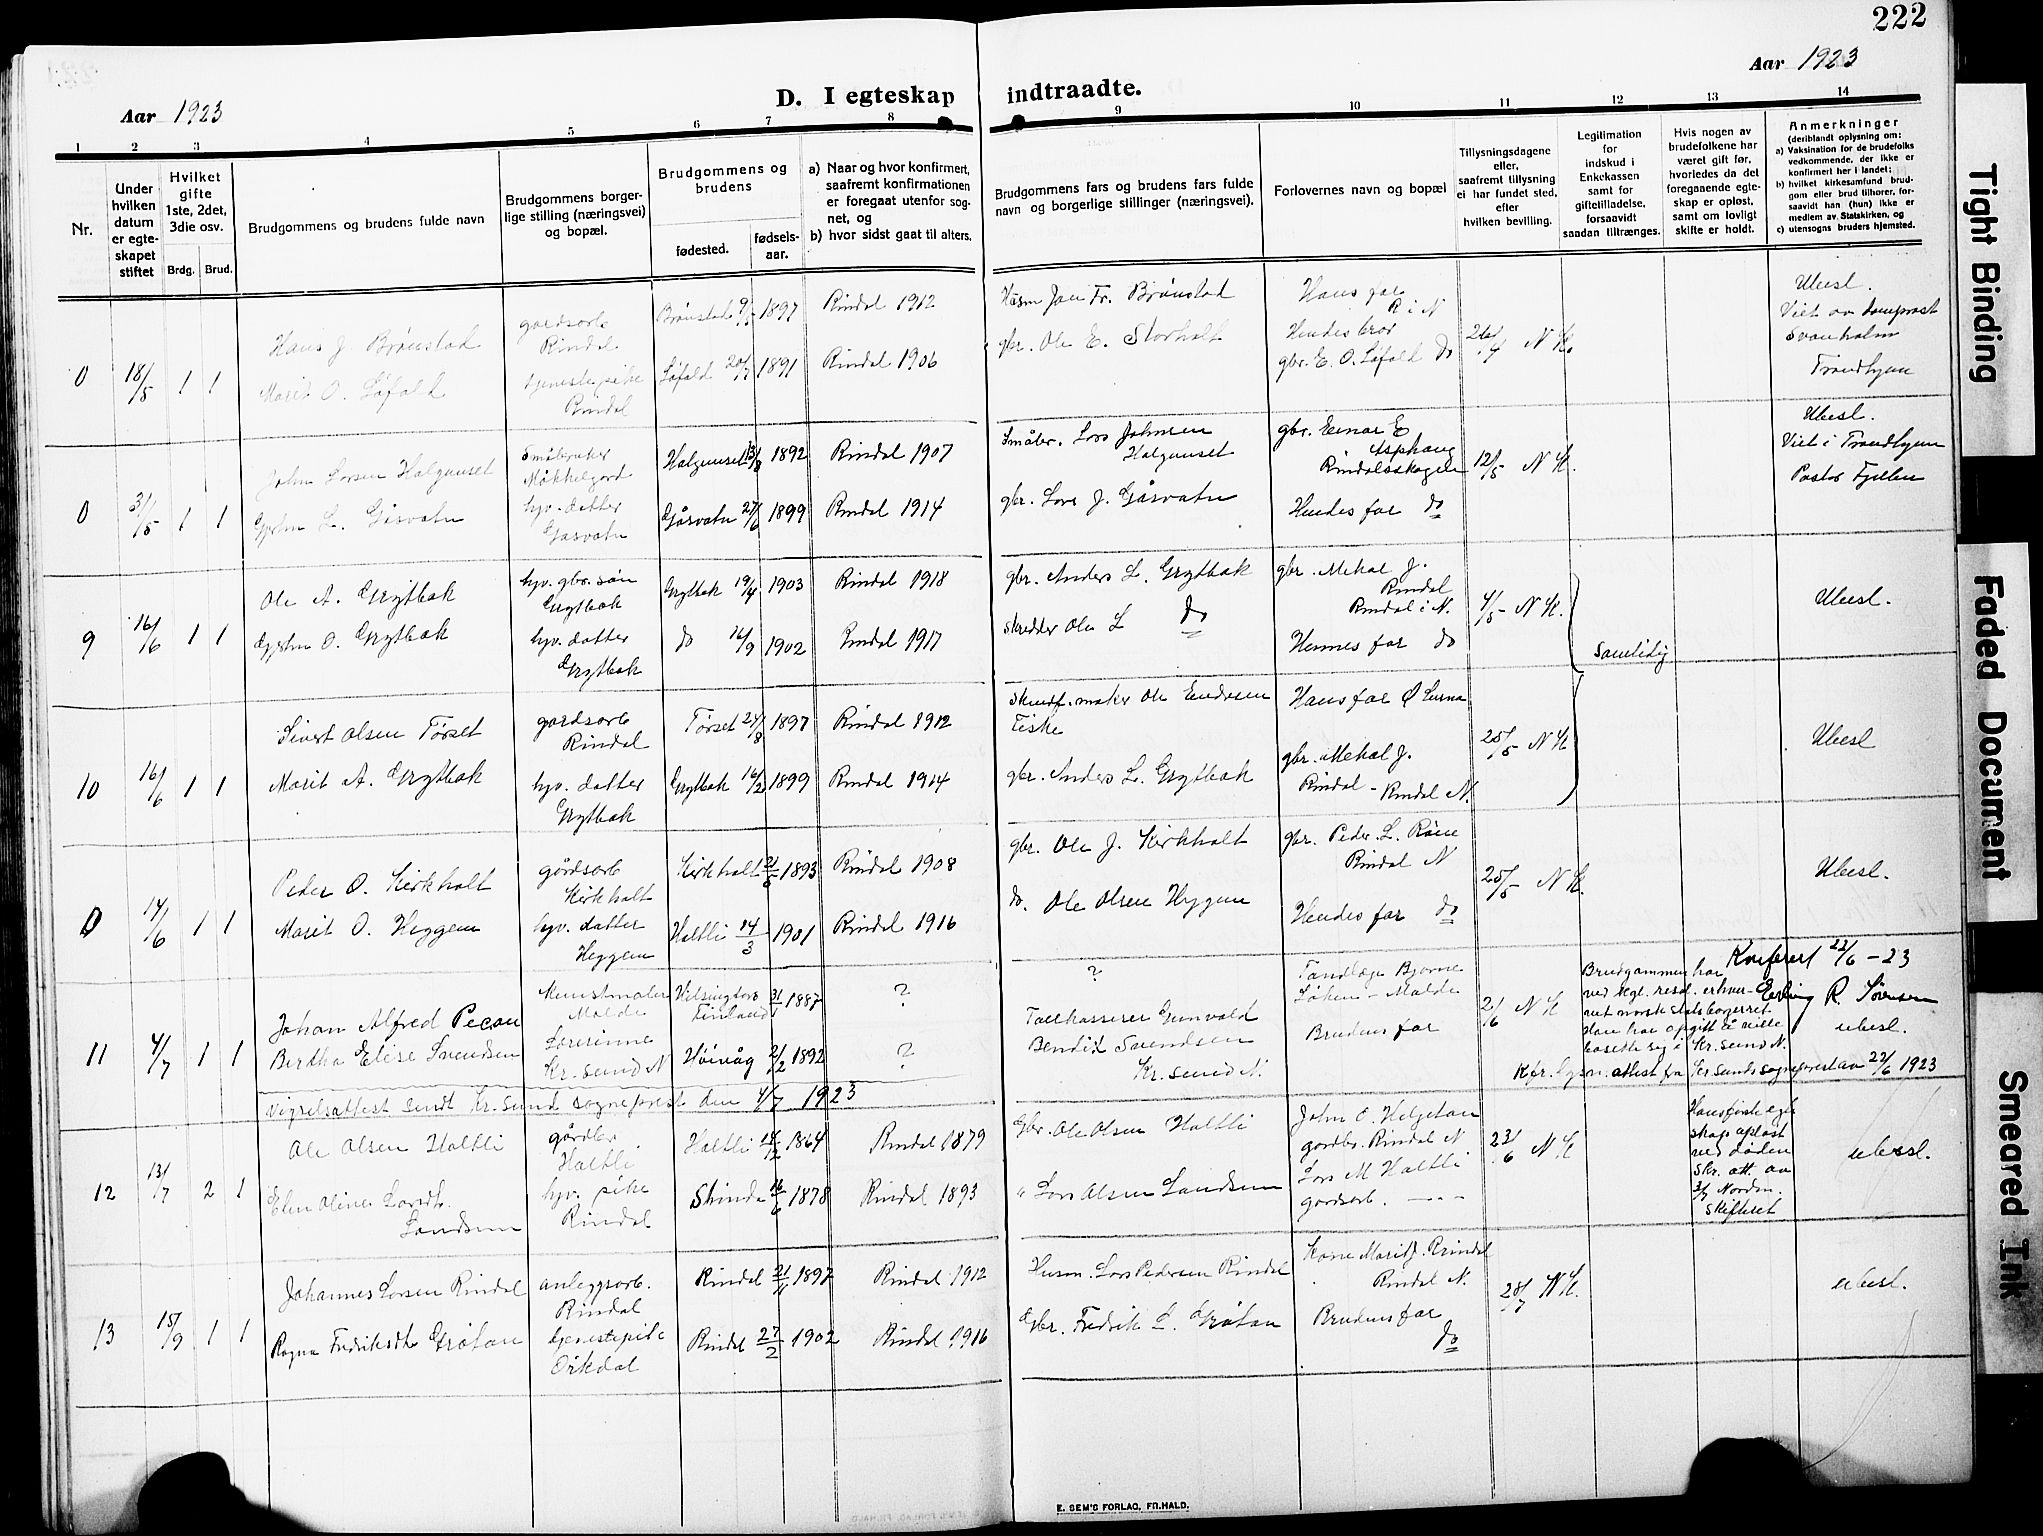 222
Aar 1923
Aar 1923
D. I egteskap indtraadte.
1 2 3 4 5 6 7 8 9 10 11 12 13 14
Nr.
Under hvilken datum er egte-skapet stiftet
Hvilket gifte 1ste, 2det, 3die osv.
Brdg. Brud.
Brudgommens og brudens fulde navn
Brudgommens borger-lige stilling (næringsvei) og bopæl.
Brudgommens og brudens
fødested. fødsels-aar.
a) Naar og hvor konfirmert, saafremt konfirmationen er foregaat utenfor sog-net, og
b) hvor sidst gaat til alters.
Brudgommens fars og brudens fars fulde navn og borgerlige stillinger (næringsvei).
Forlovernes navn og bopæl
Tillysningsdagene eller, saafremt tillysning ei har fundet sted, efter hvilken bevilling.
Legitimation for indskud i Enkekassen samt for giftetilladelse, forsaavidt saadan tiltrænges.
Hvis nogen av brudefolkene har været gift før, hvorledes da det foregaaende egte-skap er opløst, samt om lovligt skifte er holdt.
Anmerkninger
(deriblandt oplysning om:
a) Vaksination for de brudefolks vedkommende, der ikke er konfirmert her i landet;
b) hvilket kirkesamfund brud-gom eller brud tilhører, for-saavidt han (hun) ikke er medlem av Statskirken, og
c) utensogns bruders hjemsted.
0 18/5 1 1
Hans J. Brønstad
gardsarb Rindal
Brønstad 1897 Rindal 1912
Husm Jon Fr. Brønstad
Hans far R i N
Marit O. Løfald
tjenestepike Rindal
Løfald 20/7 1891 Rindal 1906
gbr. Ole E. Storholt
Hendes bror gbr. E. O. Løfald do
26/4 N K.
Ubesl.
Viet av domprost Svanholm Trondhjem
0 31/5 1 1
John Larsen Halgunset
Småbruker Møkkelgard
Halgunset 13/8 1892 Rindal 1907
Småbr. Lars Johnsen Halgunset
gbr. Einar E Asphaug Rindalsskogen
L. Gåsvatn
hjv. datter Gåsvatn
Gåsvatn 27/6 1899 Rindal 1914
gbr. Lars J. Gåsvatn
Hendes far do
12/5 N K.
Ubesl.
Viet i Trondhjem
Pastor
9 16/6 1 1
Ole A. Grytbak
hjv. gbr. søn Grytbak
Grytbak 19/4 1903 Rindal 1918
gbr. Anders L. Grytbak
gbr. Mekal J. Rindal Rindal i N.
O. Grytbak
hjv. datter Grytbak
do 16/9 1902 Rindal 1917
skredder Ole L do
Hennes far do
4/5 N K.
samtidig
Ubesl.
10 16/6 1 1
Sivert Olsen Tørset
gardsarb Rindal
Tørset 27/8 1897 Rindal 1912
maker Ole Endresen Tiske
Hans far Ø Surna
Marit A. Grytbak
hjv. datter Grytbak
Grytbak 16/2 1899 Rindal 1914
gbr. Anders L. Grytbak
gbr. Mekal J. Rindal - Rindal N.
25/5 N K
Ubesl
0 14/6 1 1
Peder O. Kirkholt
gårdsarb Kirkholt
Kirkholt 21/8 1893 Rindal 1908
gbr. Ole J. Kirkholt
gbr. Peder L. Røen Rindal N
Marit O. Heggem
hjv. datter Heggem
Holtli 14/3 1901 Rindal 1916
do. Ole Olsen Heggem
Hendes far do
25/5 N K.
Ubesl.
11 4/7 1 1
Johan Alfred Pecan
Kunstmaler Molde
Helsingfors Finland 31/1 1887 ?
?
Tandlæge Bjarne Løken - Molde
Bertha Elise Svendsen
Lærerinne Kr. sund N
Høivåg 2/2 1892 ?
Tollkasserer Gunvald Bendix Svendsen Kr. sund N.
Brudens far
2/6 N K
Brudgommen har
ved kgl. resol. erhver-
vet norsk statsborgerret
Han har opgitt å ville
bosette sig i Kr. sund N.
Kfr. lysn. attest fra Kr sunds sogneprest av 22/6 1923
Konferert 22/6 - 23
Erling R. Sørensen
ubesl.
Vigselsattest sendt Kr. sund sogneprest den 4/7 1923
12 13/7 2 1
Ole Olsen Holtli
gårdbr Holtli
Holtli 1864 Rindal 1879
Gbr. Ole Olsen Holtli
John O. Helgetun gardbr. Rindal N
Elen Oline Larsdtr. Landsem
hjv. pike Rindal
Strinda 16/6 1878 Rindal 1893
" Lars Olsen Landsem
Lars M Holtli gardsarb. - - -
23/6 N K
Hans første egte
skap opløst
ved døden
Skr. att. av
3/7 Nordm.
skifteret
ubesl.
13 15/9 1 1
Johannes Larsen Rindal
anleggsarb. Rindal
Rindal 21/11 1897 Rindal 1912
Husm. Lars Pedersen Rindal
Kone Marit J. Rindal Rindal N.
Ragna Fredriksdtr Grøtan
tjenestepike Orkdal
Rindal 27/2 1902 Rindal 1916
Gbr. Fredrik L. Grøtan
Brudens far do
28/7 N K.
ubesl.
E. SEM'S FORLAG, FR.HALD.
Tight Binding
Faded Document
Smeared Ink